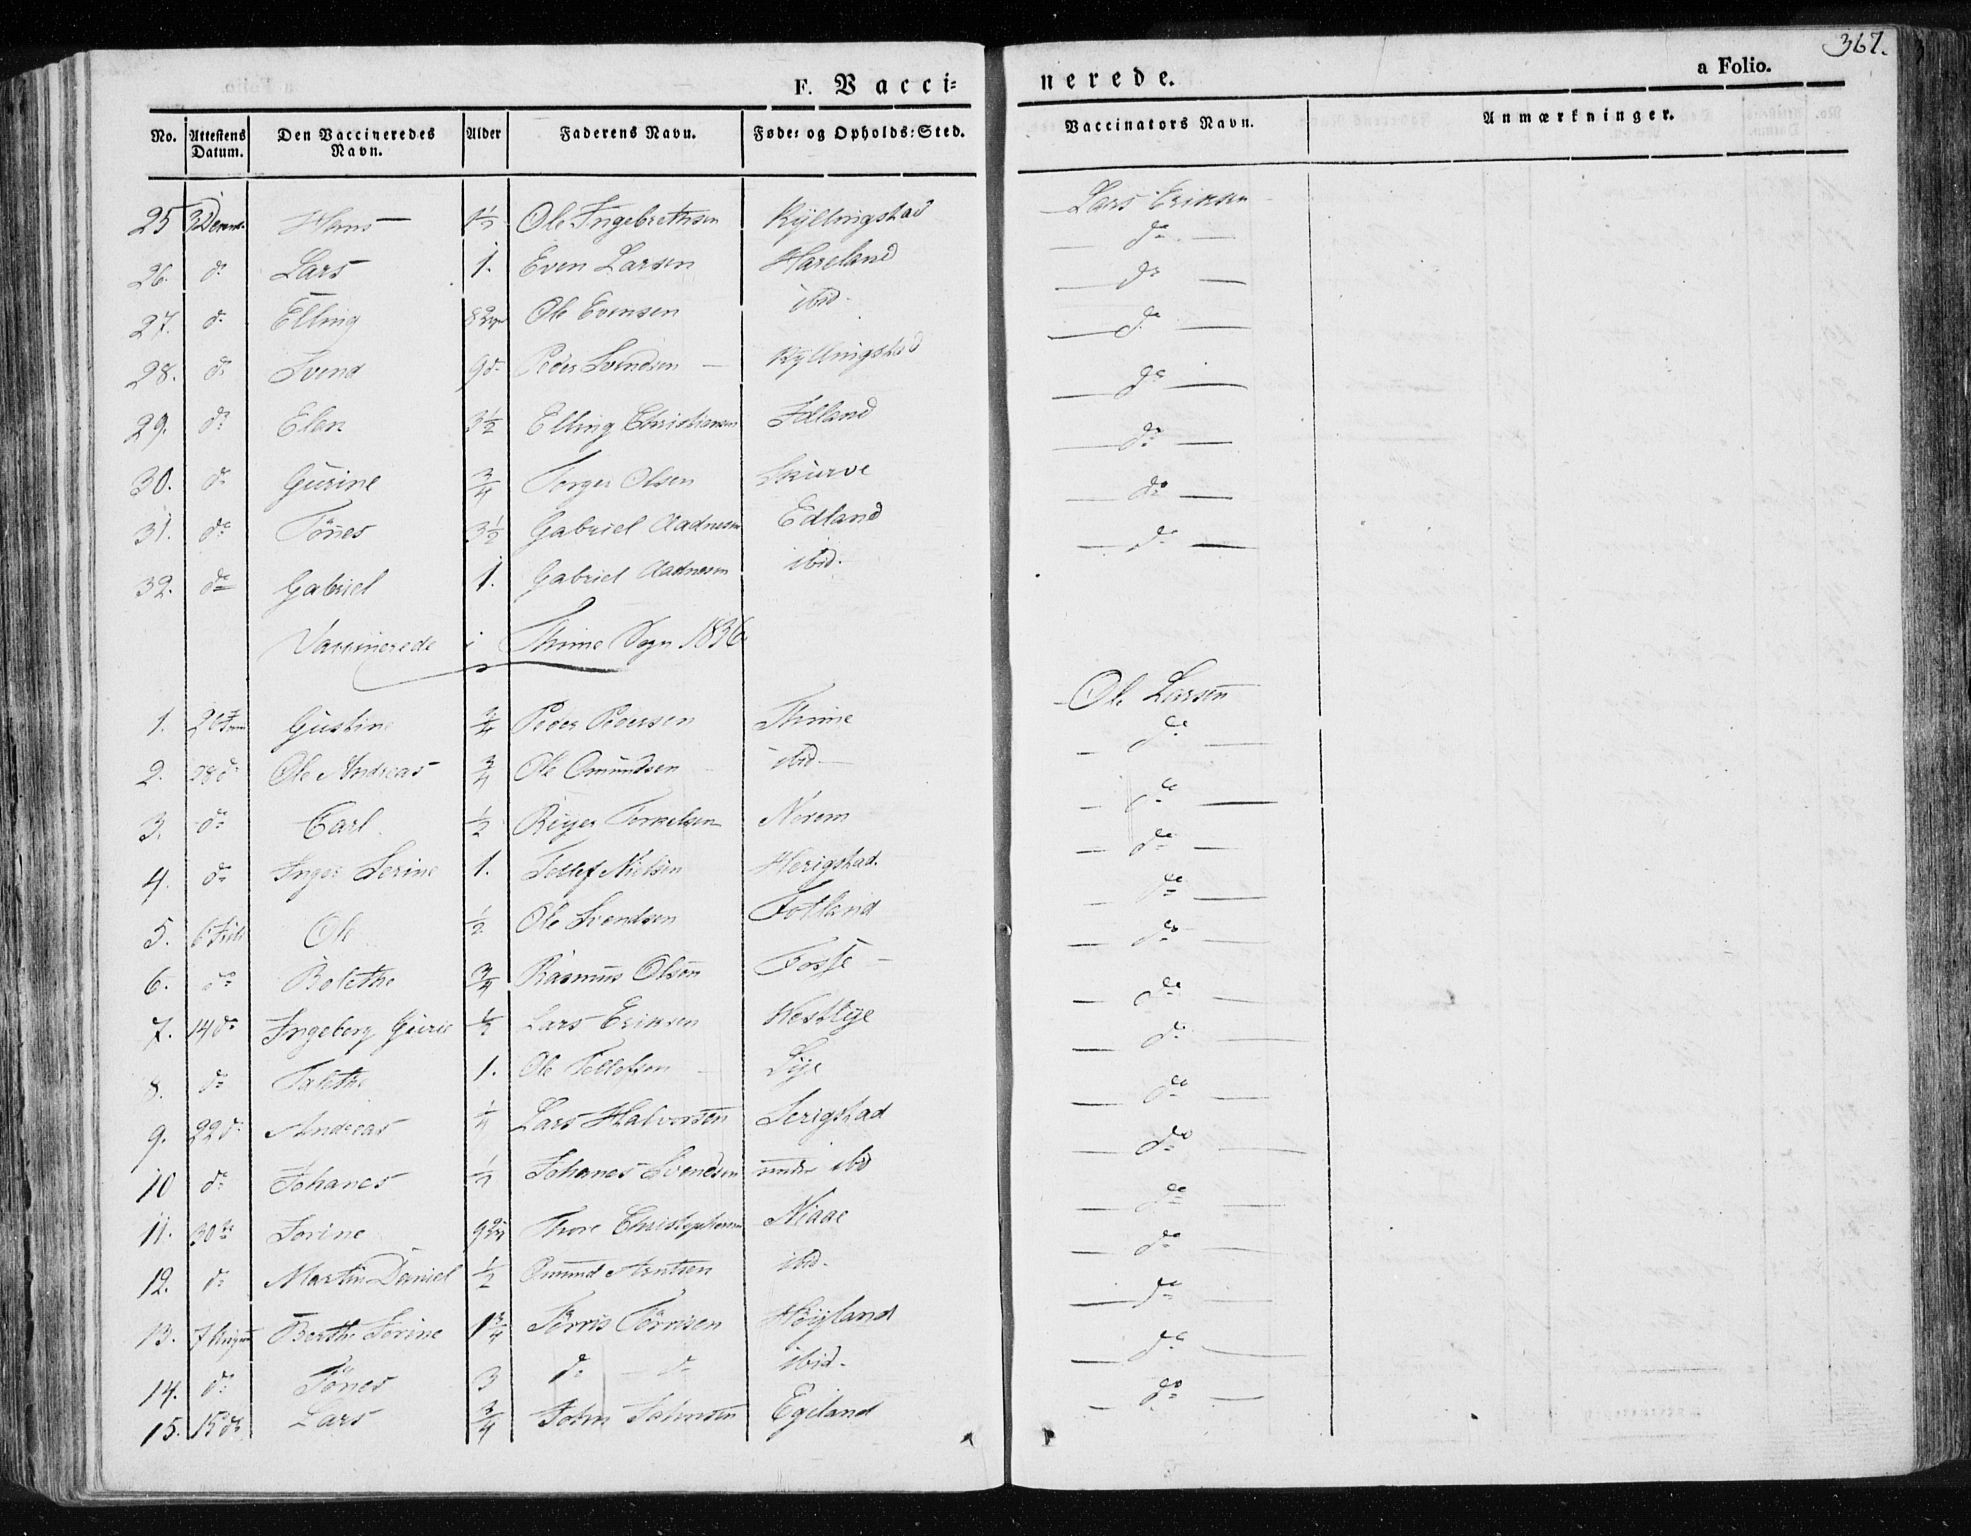 367.
F. Vacci=
nerede.
a Folio.
No. Attestens Datum. Den Vaccineredes Navn. Alder Faderens Navn. Føde= og Opholds=Sted. Vaccinators Navn. Anmærkninger.
25 Hans Ole Ingebrethsen Kyllingstad Lars Eriksen
26. do Lars 1. Even Larsen Hareland — do —
27. do Elling Ole Evensen ibid. — do —
28. do Svend 9 do Peder Svendsen — Kyllingstad — do —
29. do Elen 3½ Elling Christiansen Edland — do —
30. do Gurine ¾ Torger Olsen Skurve — do —
31. do Tönes 3½ Gabriel Aadnesen Edland — do —
32. do Gabriel 1. Gabriel Aadnesen ibid. — do —
Vaccinerede i Thime Sogn 1836
1. Gustine ¾ Peder Pedersen Thime Ole Larsen
2. 28 do Ole Andreas ¾ Ole Omundsen ibid — do —
3. do Carl ½ Reyer Torkelsen Norem — do —
4. do Inger Serine 1. Tollef Nielsen Herigstad. — do —
5. Ole ½ Ole Svendsen Fotland — do —
6. do Bolethe ¾ Rasmus Olsen Fosse — — do —
7. 14 do Ingeborg Gurie ½ Lars Eriksen Westlye — do —
8. do Talethe 1. Ole Tollefsen — Lye — do —
9. 22 do Andreas Lars Halvorsen Serigstad — do —
10 do Johanes ½ Johanes Svendsen under ibid — do —
11. 30 do Sorine Thore Christophersen Niaae — do —
12. do Martin Daniel ½ Omund Arntsen ibid. — do —
13. 7 August Berthe Sorine 1¾ Törris Törrisen Höyland — do —
14. do Tönes 3 do — do ibid. — do —
15. 15 do Lars ¾ John Salvesen Egeland — do —